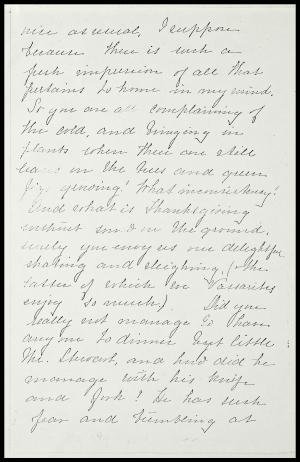 nice as usual, I suppose
because there is such a
fresh impression of all that
pertains to home in my mind.
So you are all complaining of
the cold, and bringing in
plants when there are still
leaves on the trees and green
figs growing! What inconsistency!
And what is Thanksgiving
without snow on the ground.
surely you envy us our delightful
skating and sleighing, (the
latter of which we Vassarites
enjoy so much). Did you
really not manage to have
any one to dinner but little
Mr. Stewart, and how did he
manage with his knife
and fork! He has such
fear and trembling at